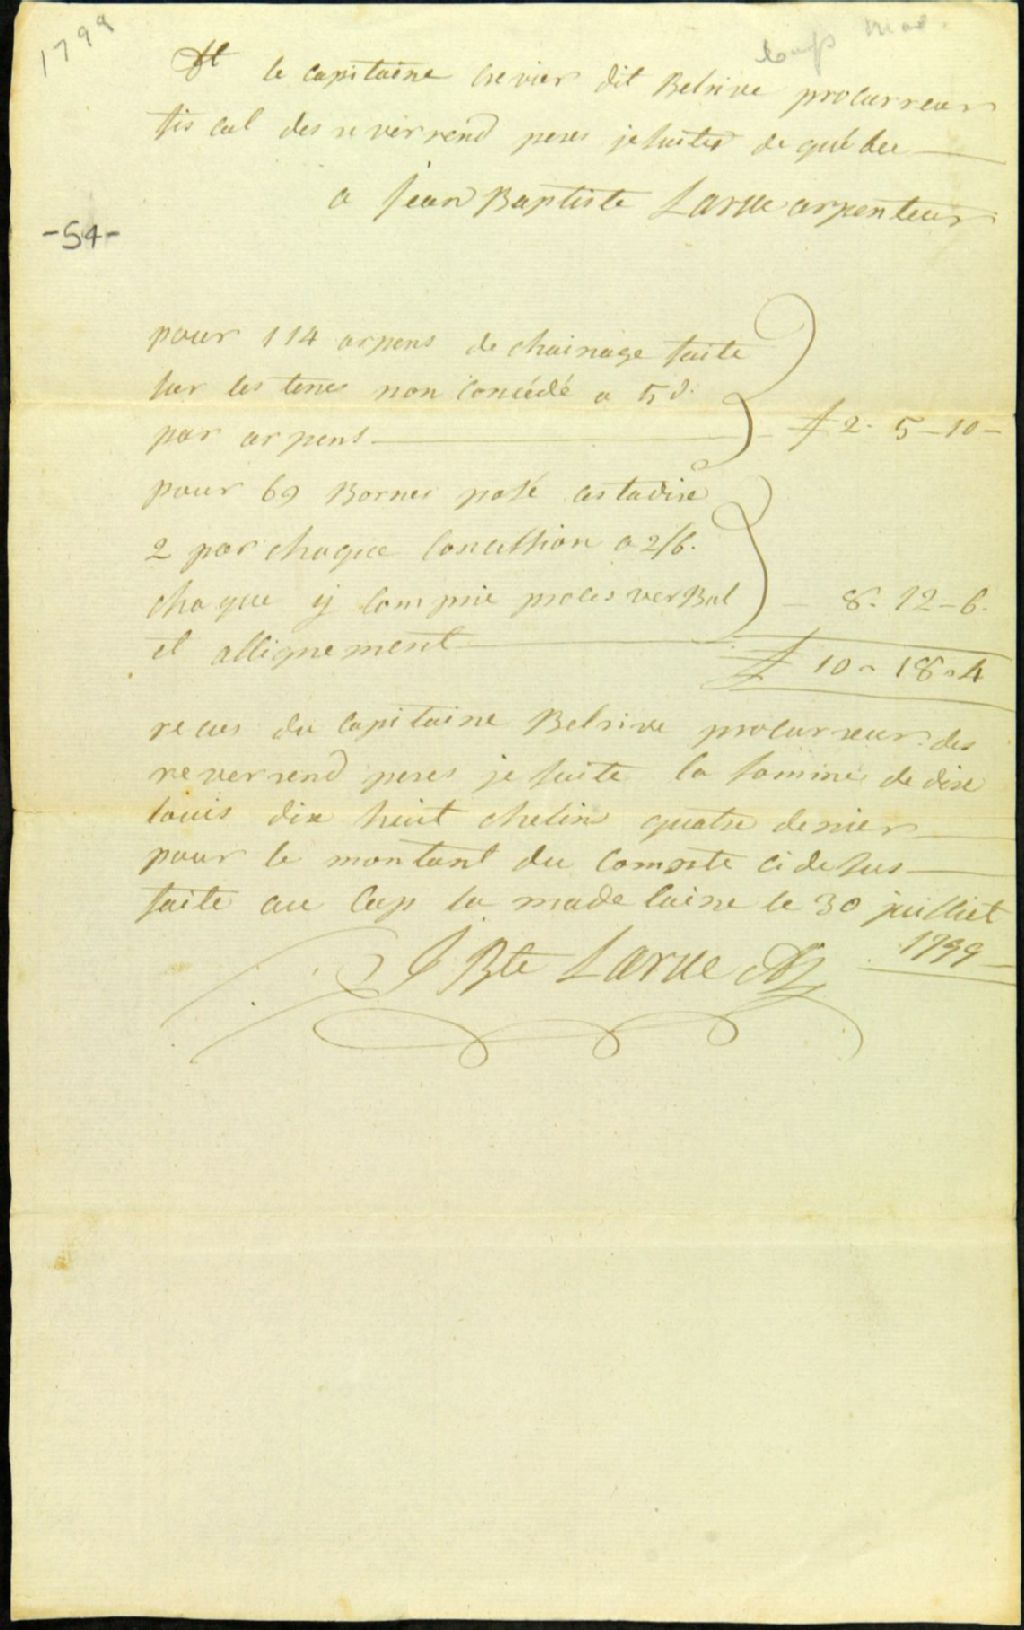 1799
Cap Mad.
M le capitaine crevier dit Belrive procurreur
fiscal des reverrend peres jesuites de quebec
a Jean Baptiste Larue arpenteur
-54-
pour 114 arpens de chainage faite
sur les terres non concédé a 5 d.
par arpens £ 2. 5-10-
pour 69 Bornes posé cestadire
2 par chaque Concession a 2/6.
chaque y compris proces verBal - 8. 12-6.
et allignement
£ 10-18-4
recues du capitaine Belrive procurreur des
reverrend peres jesuite la somme de dix
louis dix huit chelins quatre denier
pour le montant du compte cidesus
faite au Cap la madelaine le 30 juilliet
1799
J Bte Larue